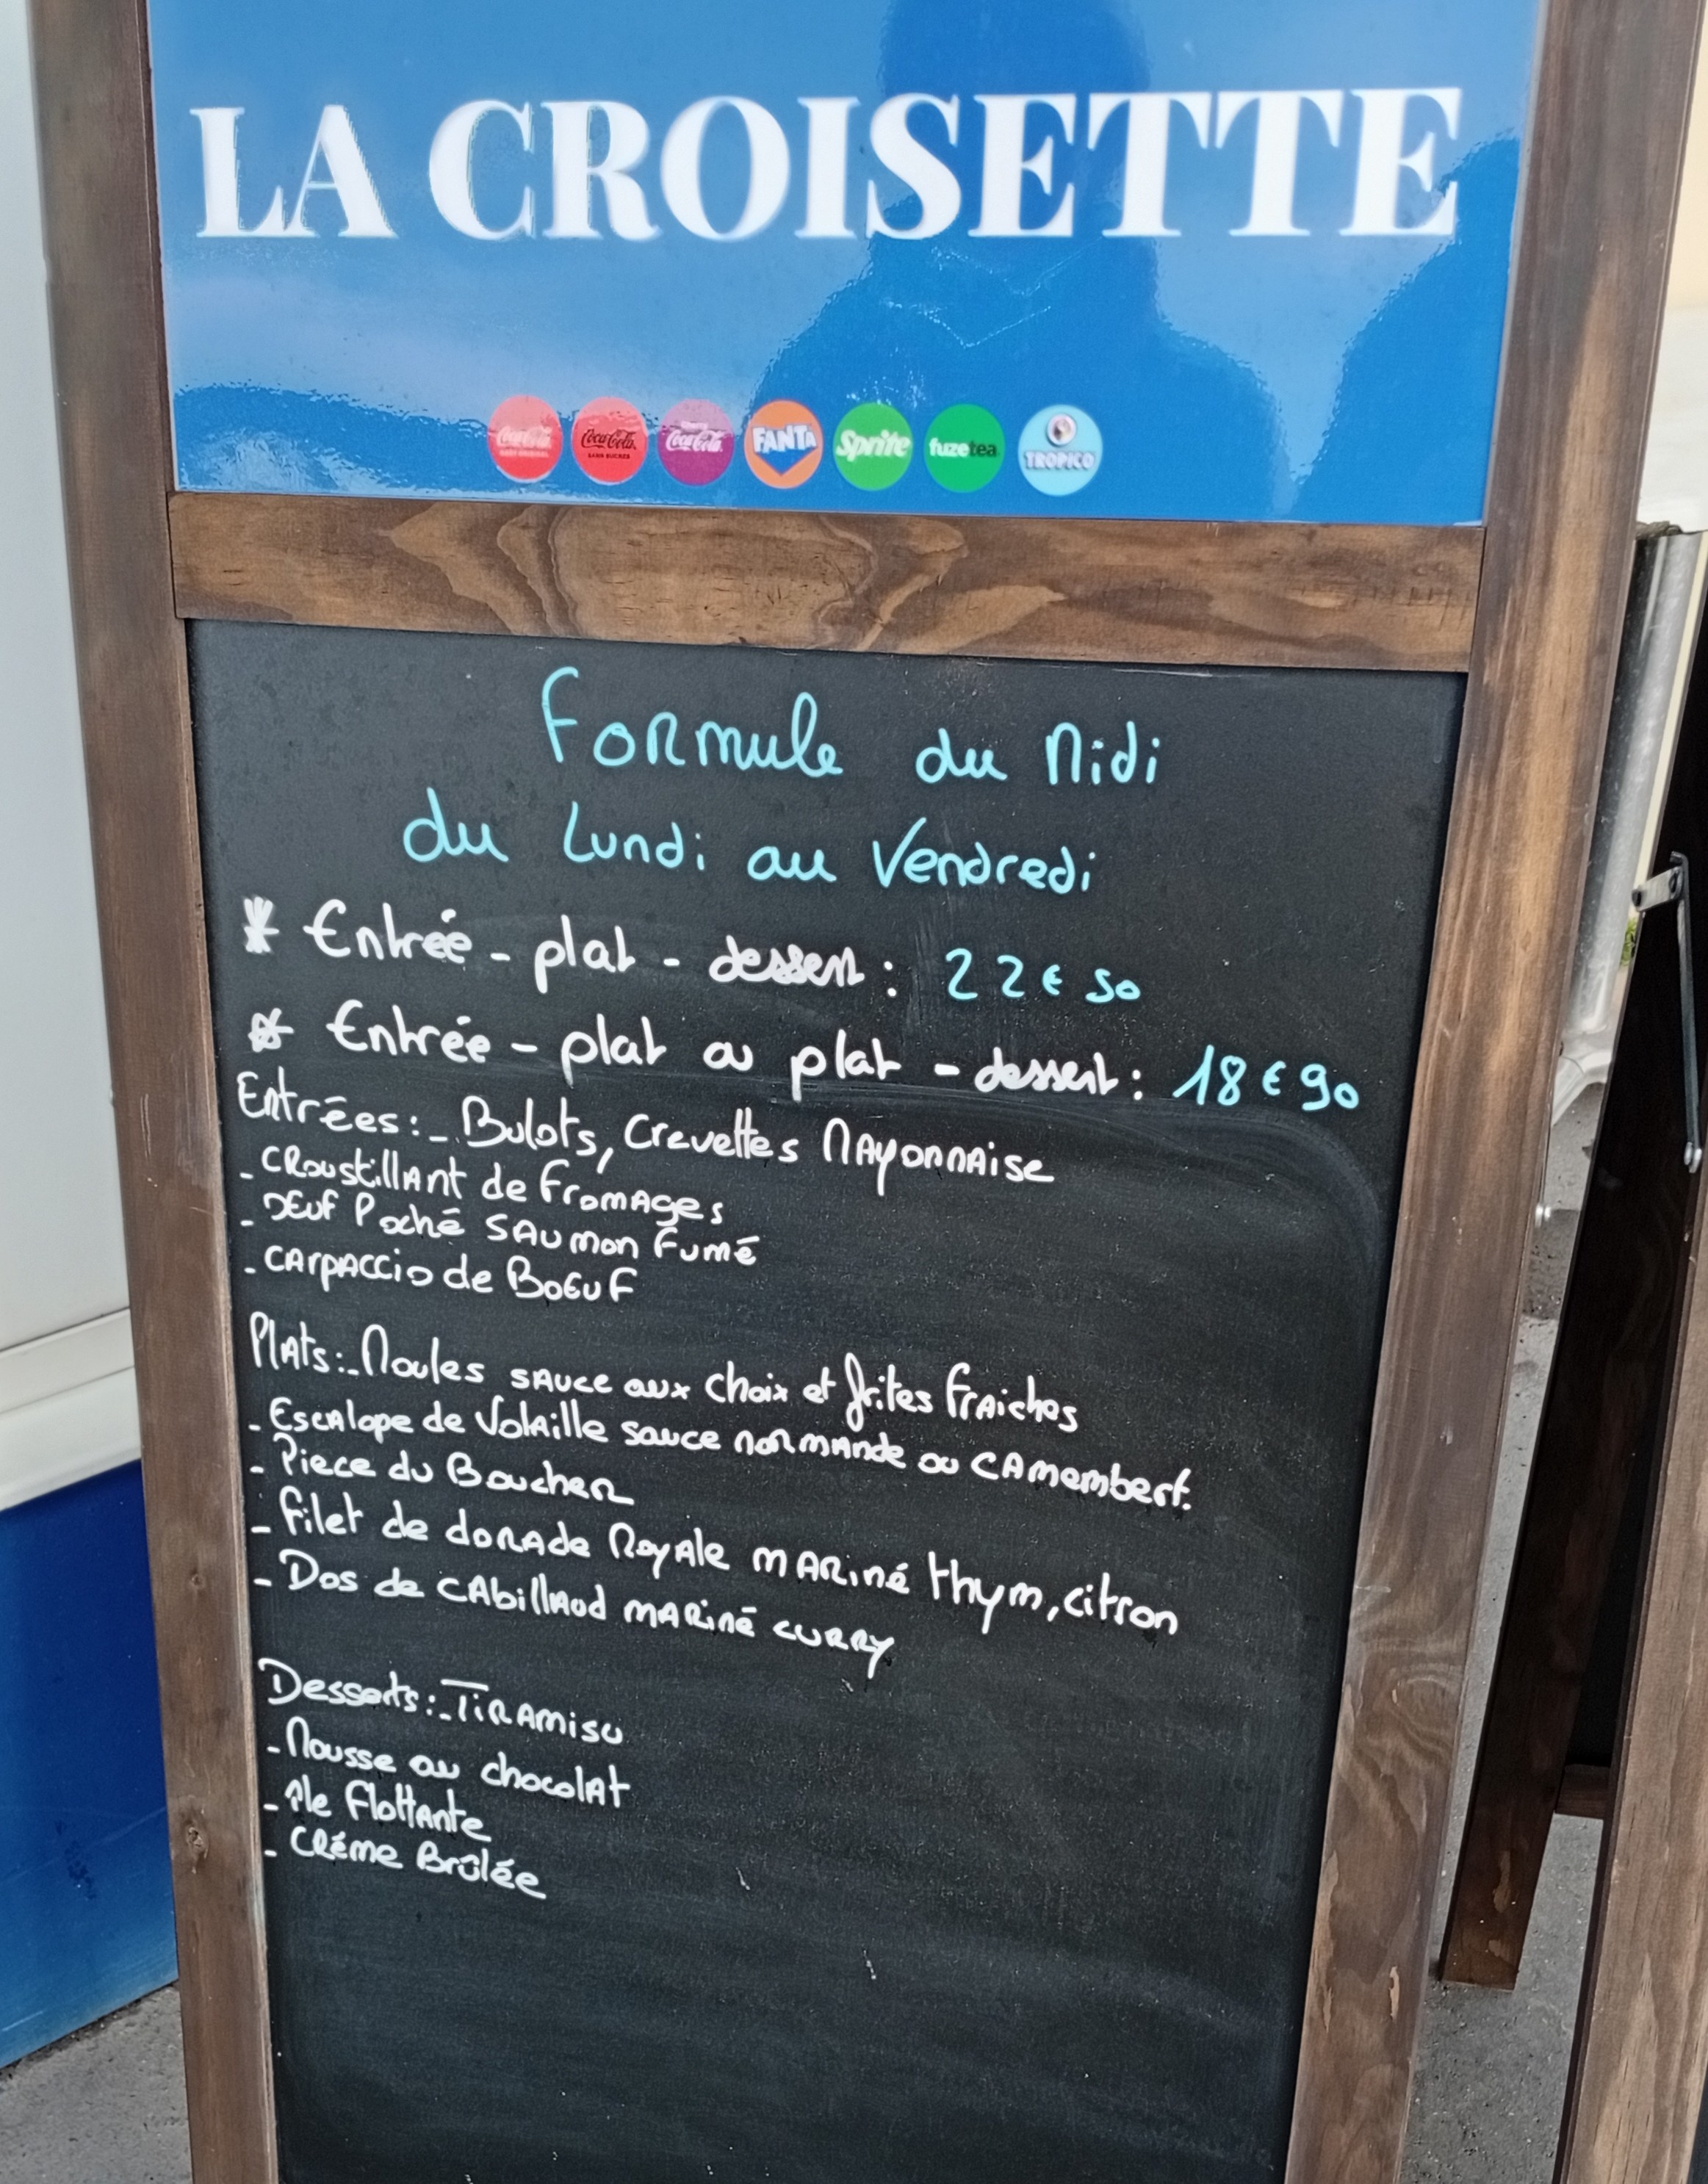 LA CROISETTE
Coca-Cola Coca-Cola SANS SUCRES Coca-Cola FANTA Sprite fuzetea TROPICO
Formule du Midi
du Lundi au Vendredi
* Entrée - plat - dessert : 22€50
* Entrée - plat ou plat - dessert : 18€90
Entrées : - Bulots, Crevettes Mayonnaise
- Croustillant de Fromages
- Oeuf Poché Saumon Fumé
- Carpaccio de Boeuf
Plats : - Moules sauce aux choix et frites fraiches
- Escalope de Volaille sauce normande ou Camembert.
- Piece du Boucher
- Filet de dorade Royale mariné thym, citron
- Dos de Cabillaud mariné curry
Desserts : - Tiramisu
- Mousse au chocolat
- île Flottante
- Créme Brûlée